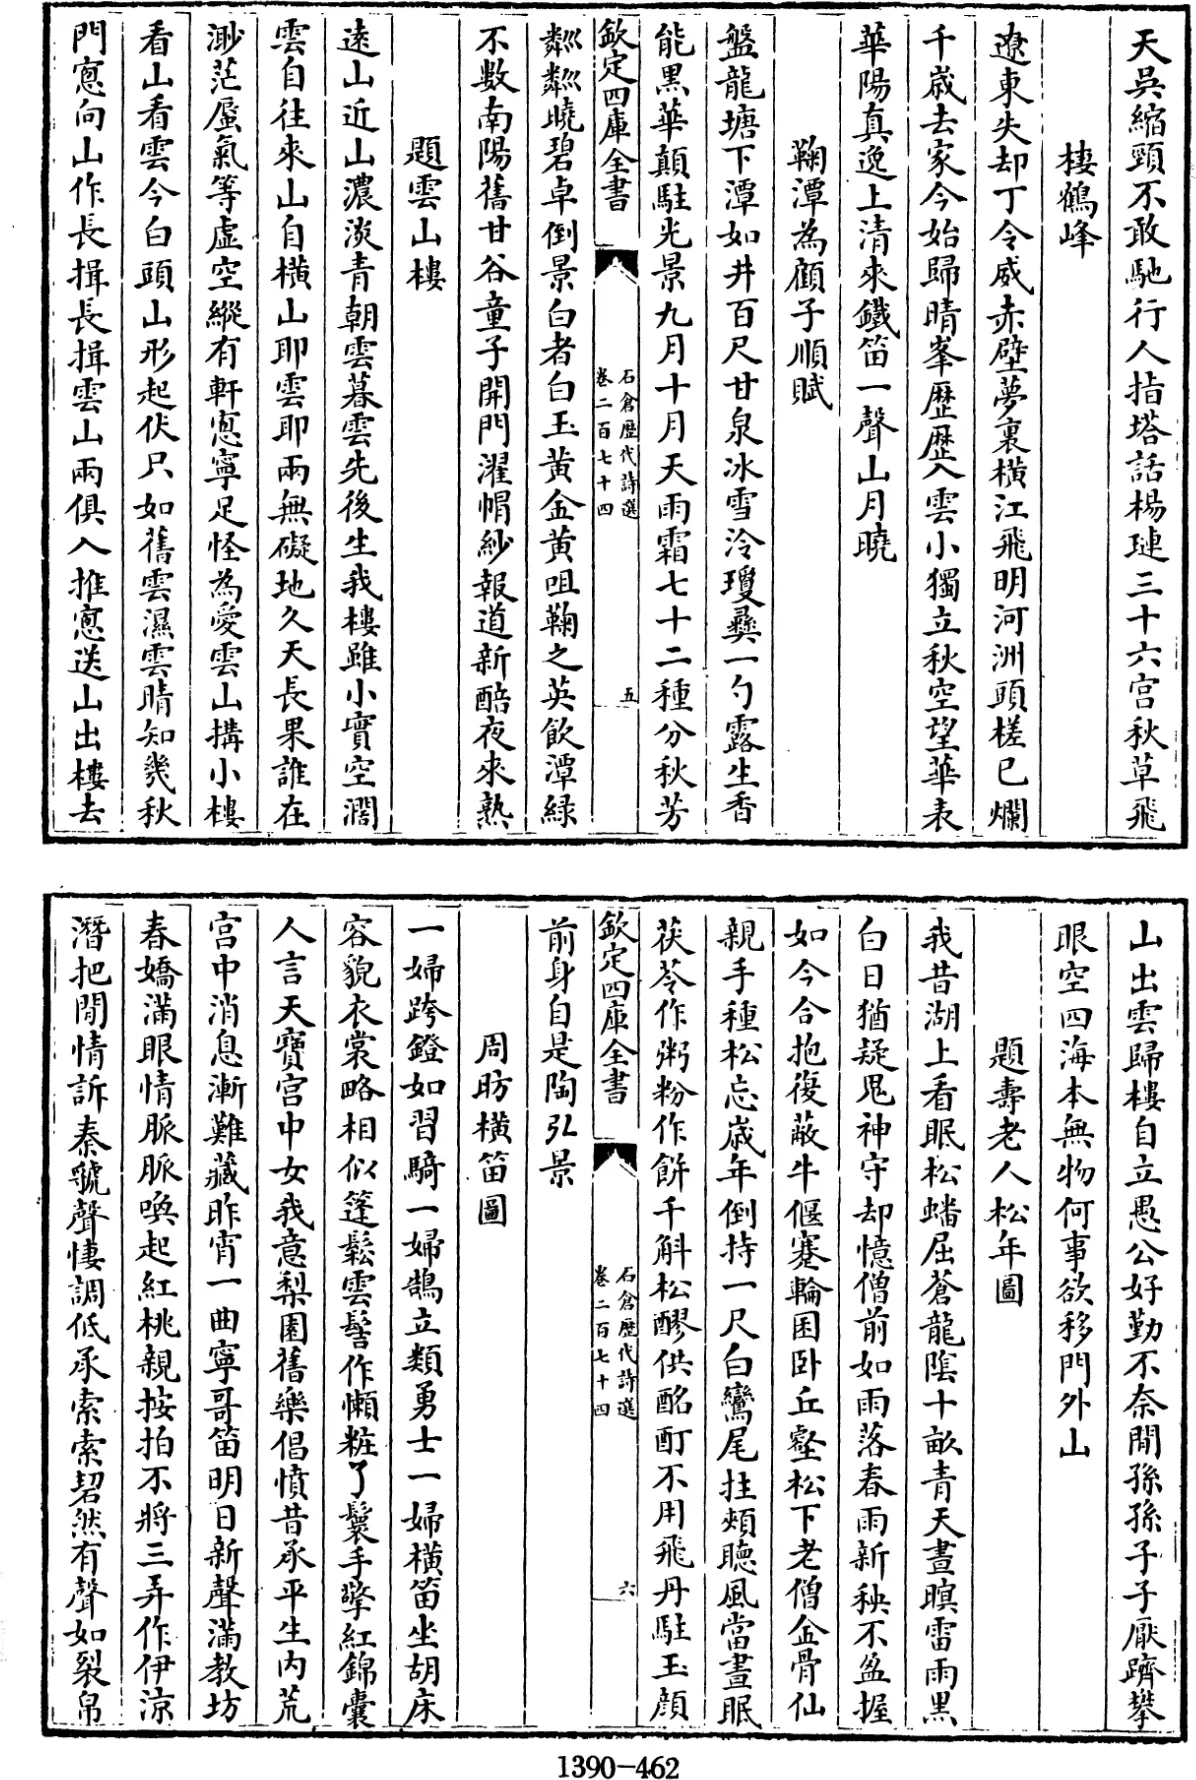 天吳縮頸不敢馳行人指塔話楊璉三十六宫秋草飛
棲鶴峰
遼東失却丁令威赤壁夢裏横江飛明河洲頭槎已爛
千歳去家今始歸晴峯歴歴入雲小獨立秋空望華表
華陽真逸上清來鐵笛一聲山月曉
鞠潭為顧子順賦
盤龍塘下潭如井百尺甘泉冰雪冷瓊彝一勺露生香
能黒華顛駐光景九月十月天雨霜七十二種分秋芳
欽定四庫全書
石倉歴代詩選
卷二百七十四
五
粼粼曉碧卓倒景白者白玉黄金黄咀鞠之英飲潭緑
不數南陽舊甘谷童子開門濯帽紗報道新醅夜來熟
題雲山樓
遠山近山濃淡青朝雲暮雲先後生我樓雖小實空濶
雲自往來山自横山耶雲耶兩無礙地久天長果誰在
渺茫蜃氣等虚空縱有軒窻寧足怪為愛雲山搆小樓
看山看雲今白頭山形起伏只如舊雲濕雲晴知幾秋
門窻向山作長揖長揖雲山兩俱入推窻送山出樓去
山出雲歸樓自立愚公好勤不奈閒孫孫子子厭躋攀
眼空四海本無物何事欲移門外山
題壽老人松年圖
我昔湖上看眠松蟠屈蒼龍陰十畝青天晝暝雷雨黒
白日猶疑鬼神守却憶僧前如雨落春雨新秧不盈握
如今合抱復蔽牛偃蹇輪囷卧丘壑松下老僧金骨仙
親手種松忘歳年倒持一尺白鸞尾拄頰聴風當晝眠
茯苓作粥粉作餅千斛松醪供酩酊不用飛丹駐玉顔
欽定四庫全書
石倉歴代詩選
卷二百七十四
六
前身自是陶弘景
周昉横笛圖
一婦跨鐙如習騎一婦鵠立類勇士一婦横笛坐胡床
容貌衣裳略相似蓬鬆雲髻作懶粧了鬟手擎紅錦囊
人言天寶宫中女我意梨園舊樂倡憤昔承平生内荒
宫中消息漸難藏昨宵一曲寧哥笛明日新聲滿教坊
春嬌滿眼情脈脈喚起紅桃親按拍不將三弄作伊涼
潛把閒情訴秦虢聲悽調低承索索砉然有聲如裂帛
1390-462